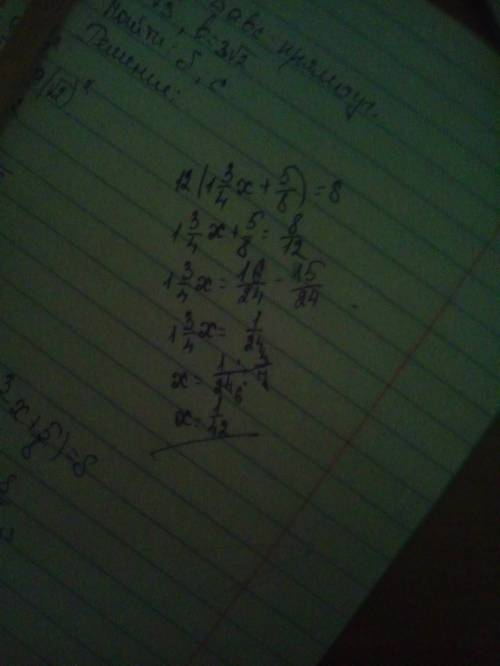 △abc прямоуг.
√3, b=3√2
Найти: S, c
Решение:
12(1 3/4 x + 5/8) = 8
1 3/4 x + 5/8 = 8/12
1 3/4 x = 16/24 - 15/24
1 3/4 x = 1/24
x = 1/24 · 4/7
x = 1/42
3 x + 5/8) = 8